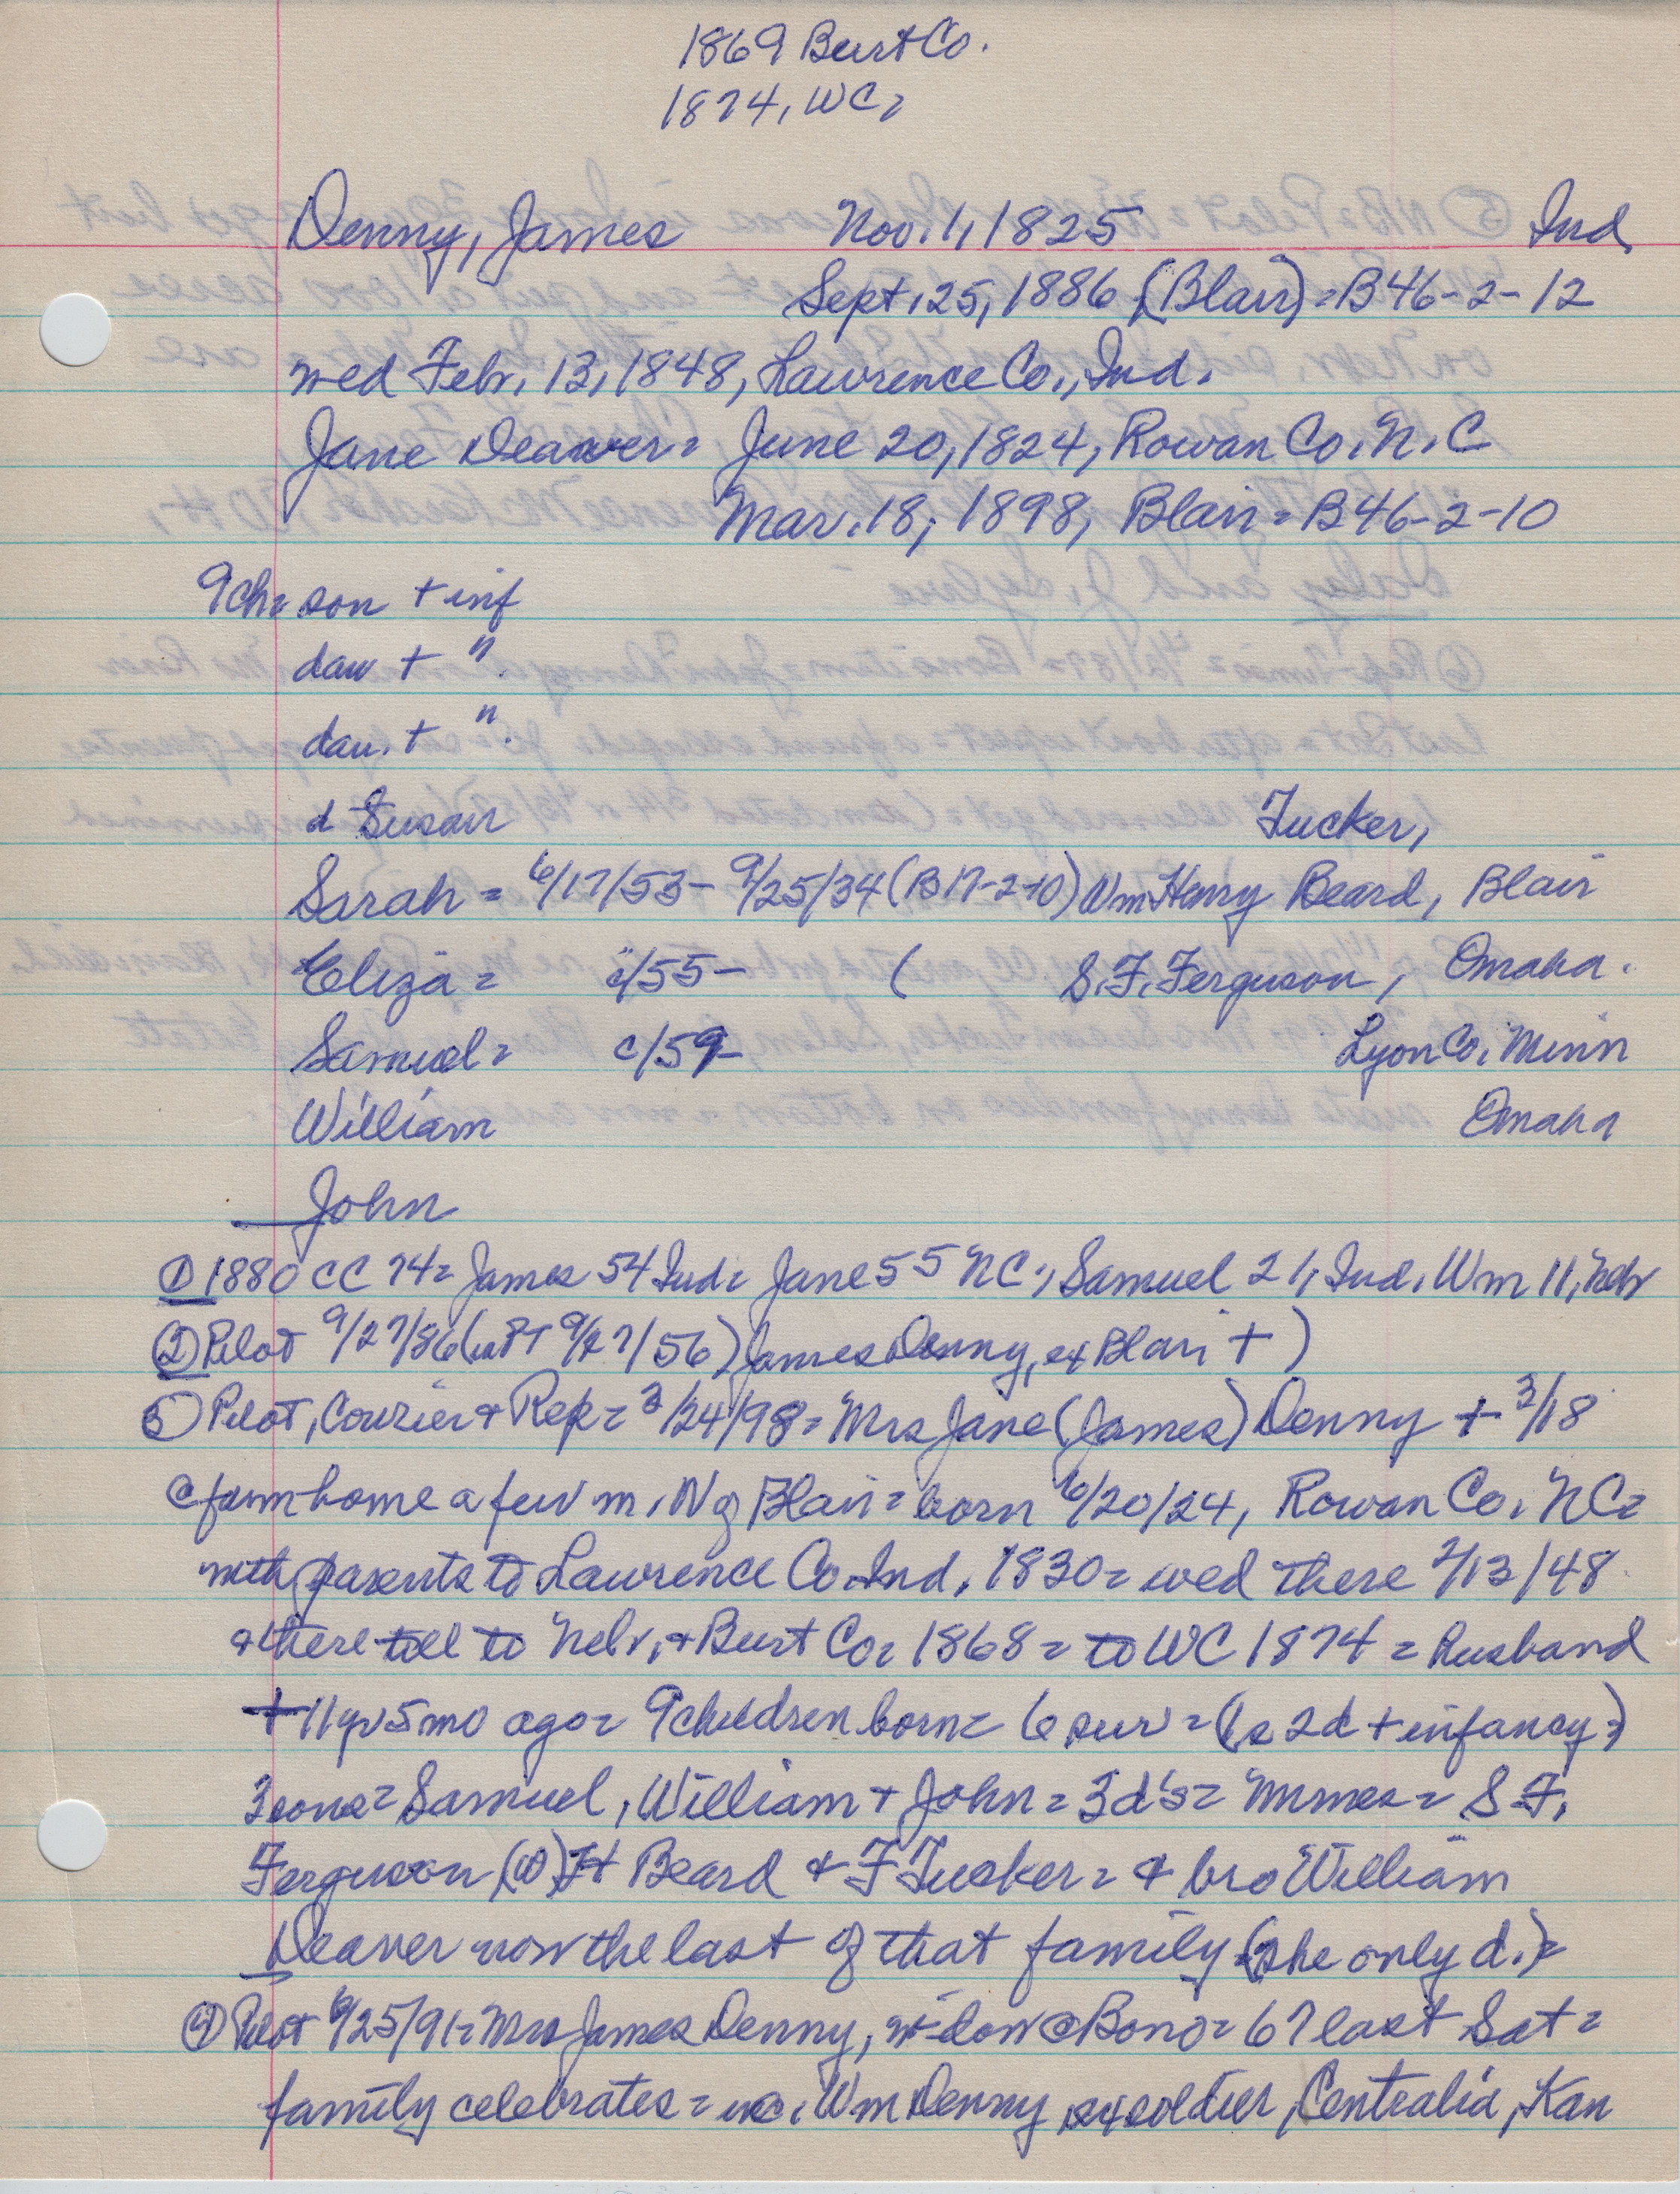 1869 Burt Co.
1874, WC=
Denny, James Nov. 1, 1825 Ind
Sept. 25, 1886 (Blair) = B46-2-12
wed Febr. 13, 1848, Lawrence Co., Ind.
Jane Deaver = June 20, 1824, Rowan Co. N.C
Mar. 18, 1898, Blair = B46-2-10
9ch= son + inf
dau + " .
dau. + " .
d Susan Tucker,
Sarah = 6/17/53 - 9/25/34 (B17-2-10) Wm Henry Beard, Blair
Eliza = /55 - ( S.F. Ferguson, Omaha.
Samuel = c/59 - Lyon Co. Minn
William Omaha
John
① 1880 CC 74 = James 54 Ind = Jane 55 NC, Samuel 21, Ind. Wm 11, Nebr
② Pilot 9/27/86 ( PT 9/27/56) James Denny, Blair +)
3) Pilot, Courier + Rep = 3/24/98 = Mrs Jane (James) Denny + 3/18
@ farm home a few m. N of Blair = born 6/20/24, Rowan Co. NC =
with parents to Lawrence Co. Ind. 1830 = wed there 2/13/48
+ there till to Nebr. + Burt Co = 1868 = to WC 1874 = Husband
+ 11 yr 5 mo ago = 9 children born = 6 sur = (1s 2d + infancy =)
3 sons = Samuel, William + John = 3 d's = Mmes = S.F.
Ferguson (W) H Beard + F Tucker = + bro William
Deaver now the last of that family (she only d.) =
④ Pilot 6/25/91 = Mrs James Denny, widow @ Bono = 67 last Sat =
family celebrates = inc. Wm Denny, ex soldier, Centralia, Kan